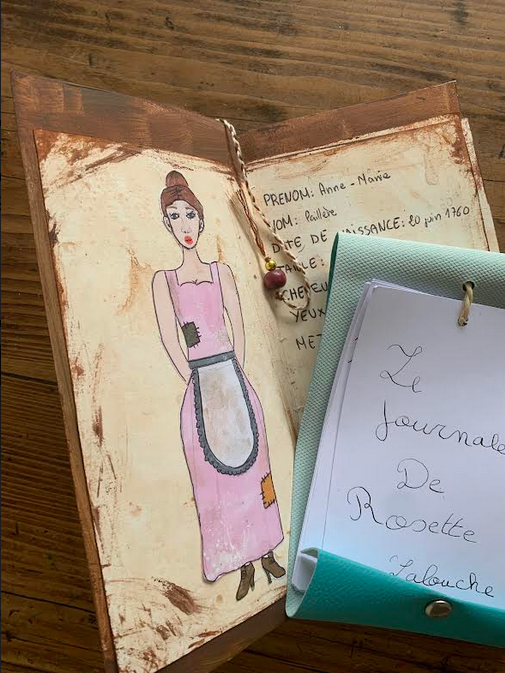 PRENOM: Anne-Marie
NOM: Paillère
DATE DE NAISSANCE: 20 juin 1760
TAILLE:
CHEVEU
YEUX
MET
Le
Journale
De
Rosette
Labuche